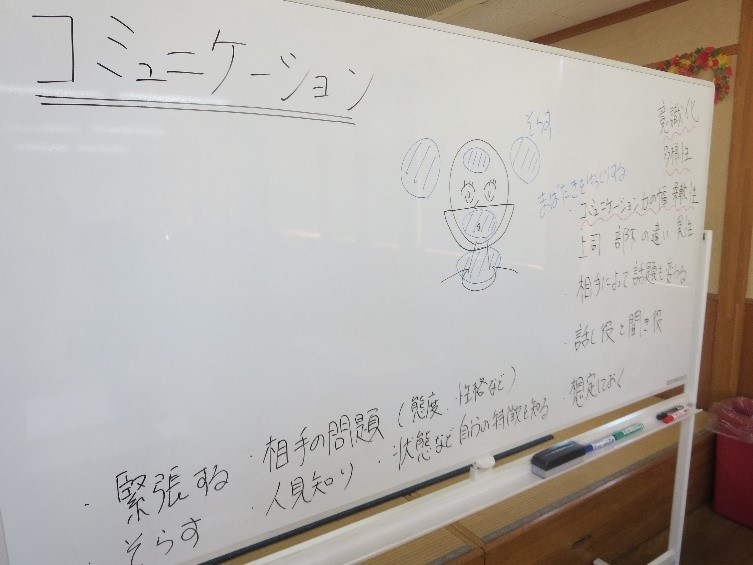 コミュニケーション
そらす
まばたきをゆっくりする
意識化
多様性
・コミュニケーション力の幅 柔軟性
上司・部下の違い 異性
・相手によって話題も変わる
・話し役と聞き役
・想定しておく
・緊張する
・相手の問題（態度・性格など）
・人見知り
・状態など自分の特徴を知る
・そらす